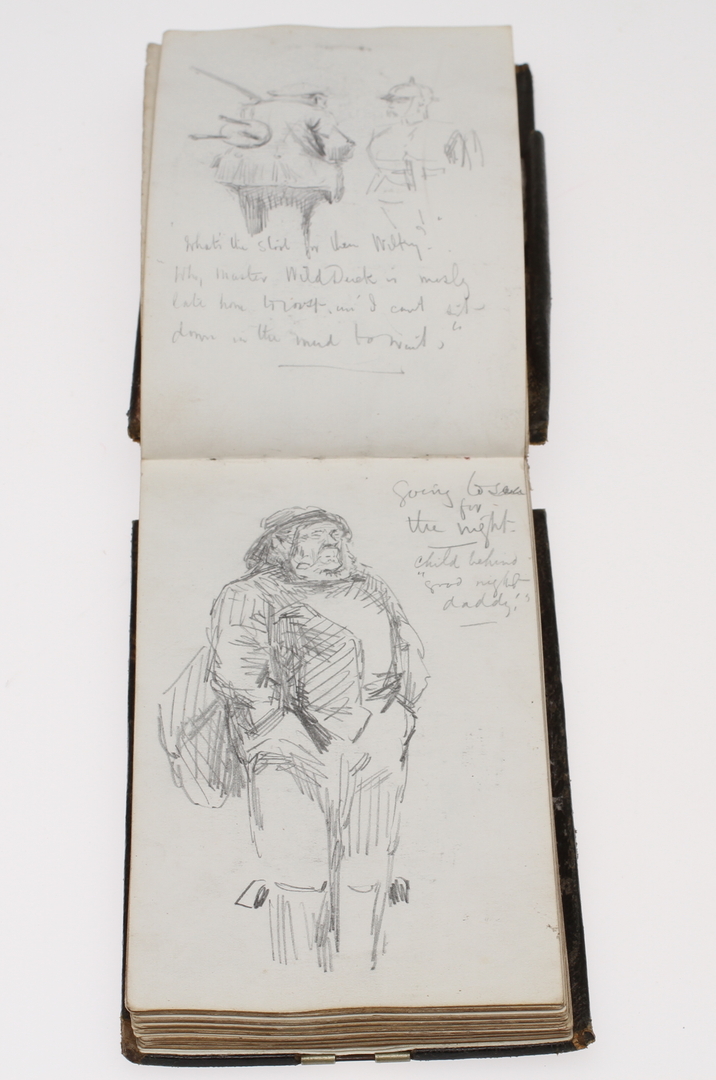 "What's the stool for then Wilfry".
Why, master Wild Duck is mostly
late home to roost, an' I can't sit
down in the mud to wait,"
Going to sea
for
the night.
child behind
"good night
daddy!"